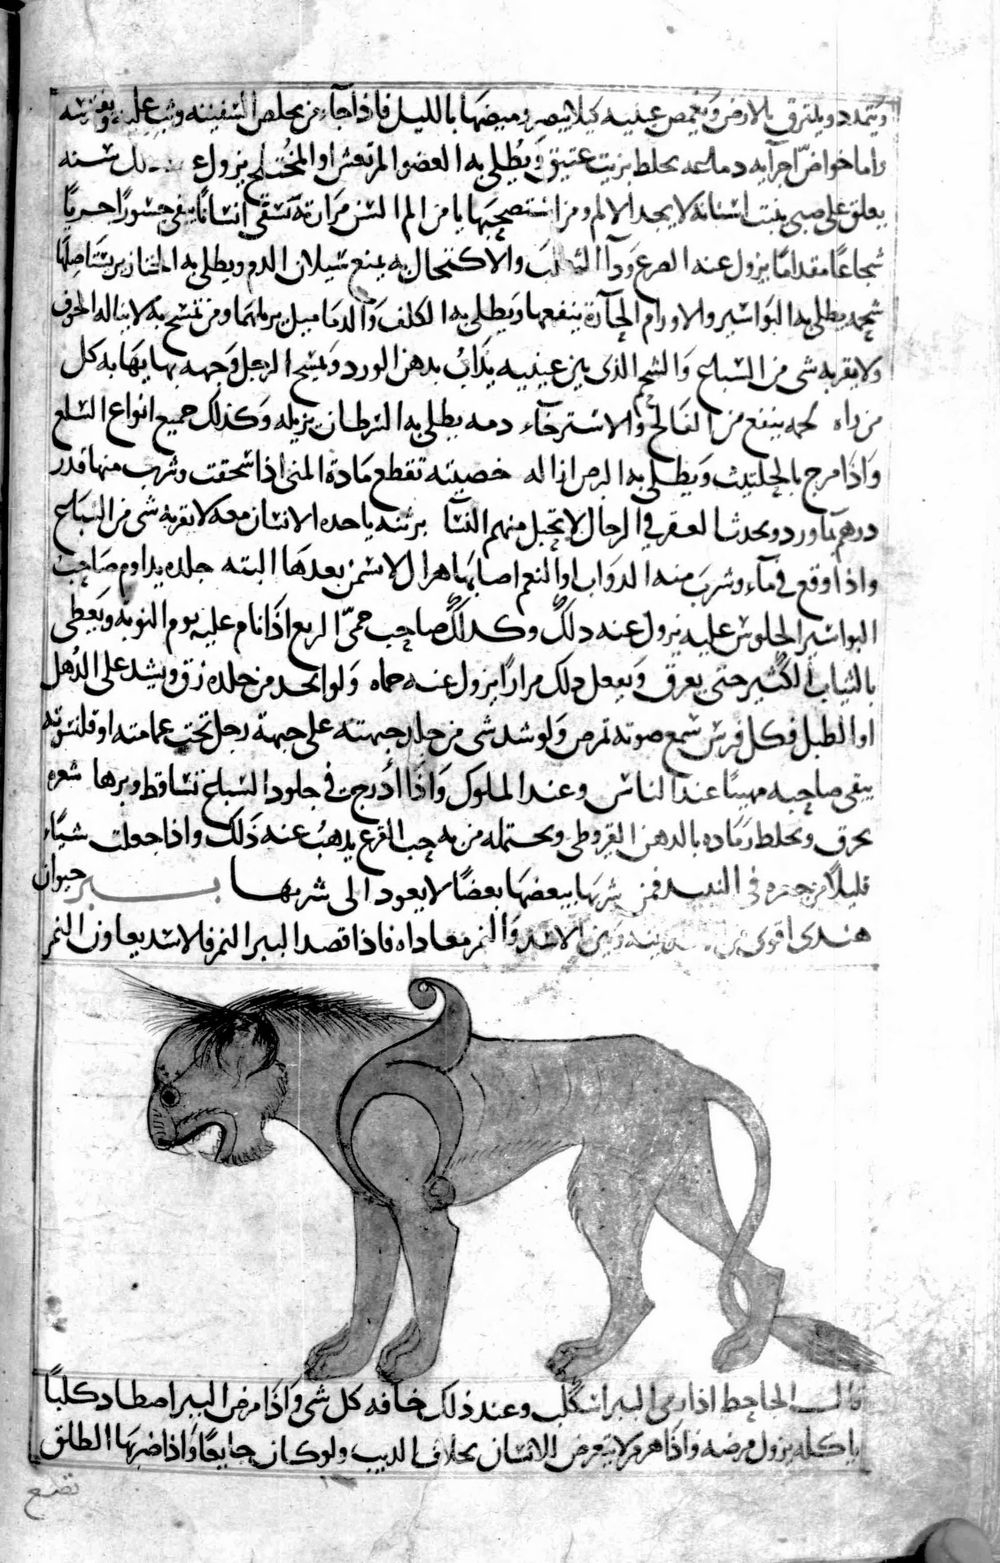 ويتمدد ويلتزق بالارض ويغمض عينيه كيلا يبصر وميضها بالليل فاذا جاء من يخلص السفينه وثب عليه ويفترسه
واما خواص اجزايه دماغه يخلط بزيت عتيق ويطلى به العضو المرتعش او المختلج يزول سنه
يعلق على صبي ينبت اسنانه لا يجد الالم ومن استصحبها يامن الم السن مرارته تسقى انسانا يبقى جسورا جريا
شجاعا مقداما يزول عنه الصرع وداء الثعلب والاكتحال به يمنع سيلان الدم ويطلى به الخنازير يستاصلها
شحمه يطلى به البواسير والاورام الحارة ينفعها ويطلى به الكلف والدماميل يزيلهما ومن تمسح به لا يناله الخوف
ولا يقربه شي من السباع والشحم الذى بين عينيه يذاب بدهن الورد ويمسح الرجل وجهه بها يهابه كل
من راه لحمه ينفع من الفالج والاسترخاء دمه يطلى به السرطان يزيله وكذلك جميع انواع السلع
واذا مزج بالحلتيث ويطلى به البرص ازاله خصيته تقطع مادة المنى اذا سحقت وشرب منها قدر
درهم بماورد ويحدث العقر في الرجال لا تحبل منهم النسا برثنه ياخذه الانسان معه لا يقربه شي من السباع
واذا اوقع في ماء وشرب منه الدواب او النعم اصابها هزال لا تسمن بعدها البته جلده يداوم صاحب
البواسير الجلوس عليه يزول عنه ذلك وكذلك صاحب حمى الربع اذا نام عليه يوم النوبة ويغطى
بالثياب الكثير حتى يعرق ويفعل ذلك مرارا يزول عنه حماه ولو اتخذ من جلده زق ويشد على الدهل
او الطبل فكل فرس سمع صوته تمرض ولو شد شي من جلد جبهته على جبهة رجل تحت عمامته او قلنسوته
يبقى صاحبه مهيبا عند الناس وعند الملوك واذا ادرجت في جلود السباع تساقط وبرها شعره
يحرق ويخلط رماده بالدهن القروطى ويحتمله من به حب القرع يذهب عنه ذلك واذا جعلت شياء
قليلا من جعره في النبيد فمن شربها يبغضها بعضا لا يعود الى شربها ببر حيوان
هندى اقوى من بينه وبين الاسد والنمر معاداه فاذا قصد الببر النمر فالاسد يعاون النمر
قال الجاحظ اذا رمى الببر استكلب وعند ذلك خافه كل شي واذا مرض الببر اصطاد كلبا
ياكله يزول مرضه واذا هرم لا يتعرض الانسان بخلاف الديب ولو كان جايعا واذا ضربها الطلق
تضع